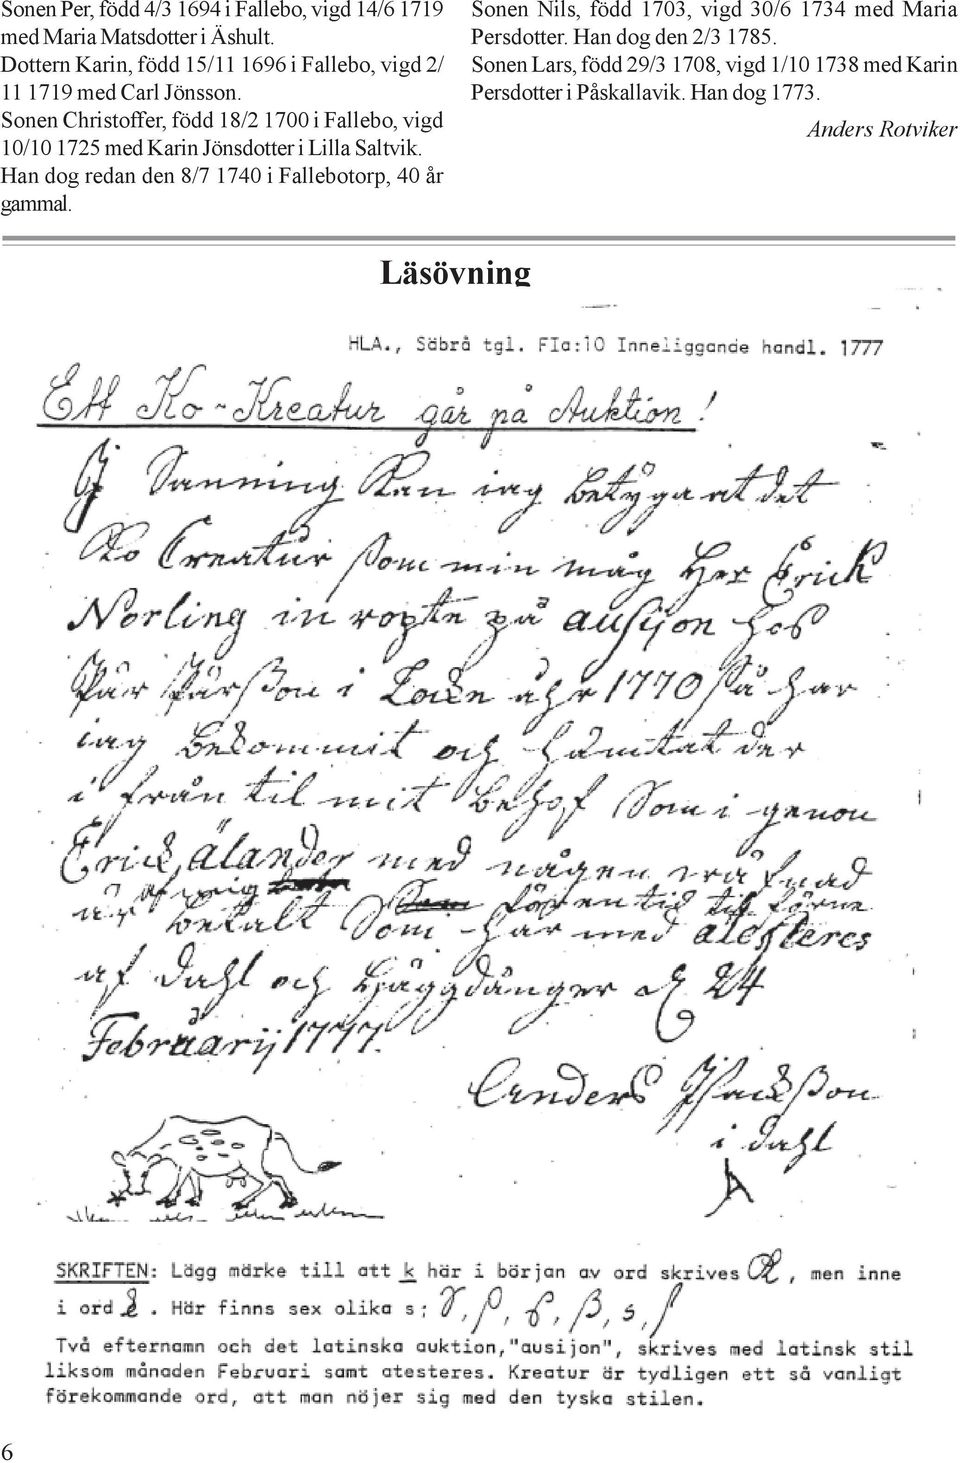 Sonen Per, född 4/3 1694 i Fallebo, vigd 14/6 1719
med Maria Matsdotter i Äshult.
Dottern Karin, född 15/11 1696 i Fallebo, vigd 2/
11 1719 med Carl Jönsson.
Sonen Christoffer, född 18/2 1700 i Fallebo, vigd
10/10 1725 med Karin Jönsdotter i Lilla Saltvik.
Han dog redan den 8/7 1740 i Fallebotorp, 40 år
gammal.
Sonen Nils, född 1703, vigd 30/6 1734 med Maria
Persdotter. Han dog den 2/3 1785.
Sonen Lars, född 29/3 1708, vigd 1/10 1738 med Karin
Persdotter i Påskallavik. Han dog 1773.
Anders Rotviker
Läsövning
HLA., Säbrå tgl. FIa:10 Inneliggande handl. 1777
Ett Ko-Kreatur går på Auktion!
J Sanning Kan iag betyga at det
Ko Creatur som min måg Her Erick
Norling in ropte på ausijon hos
Pär Pärßon i Locke åhr 1770 Så har
iag bekommit och hämtat der
i från til mit behof Som i genom
Erick älander med någon
är af mig
betalt Som har med atesteres
af Dahl och Häggdånger d 24
Februarij 1777.
Anders Jsackßon
i dahl
A
SKRIFTEN: Lägg märke till att k här i början av ord skrives K, men inne
i ord k. Här finns sex olika s: S, s, s, ß, s, s
Två efternamn och det latinska auktion,"ausijon", skrives med latinsk stil
liksom månaden Februari samt atesteres. Kreatur är tydligen ett så vanligt
förekommande ord, att man nöjer sig med den tyska stilen.
6